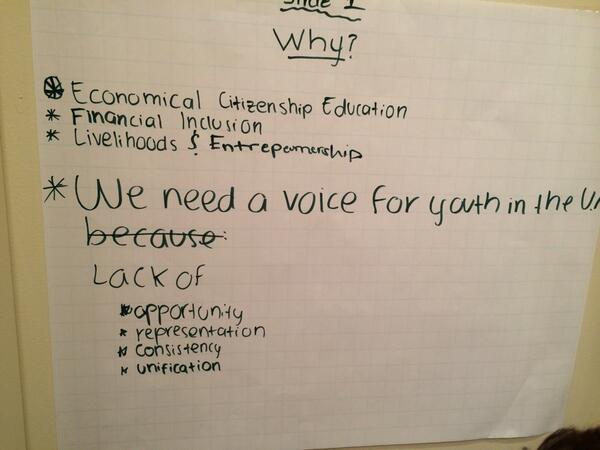 Slide 1
Why?
* Economical Citizenship Education
* Financial Inclusion
* Livelihoods & Entrepernership
* We need a voice for youth in the U.
because:
Lack of
* opportunity
* representation
* consistency
* unification